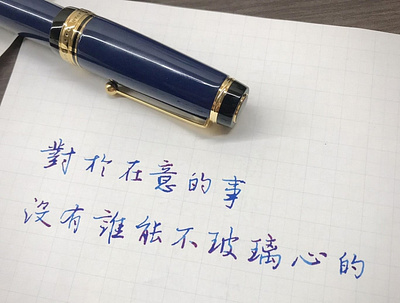 對於在意的事
沒有誰能不玻璃心的